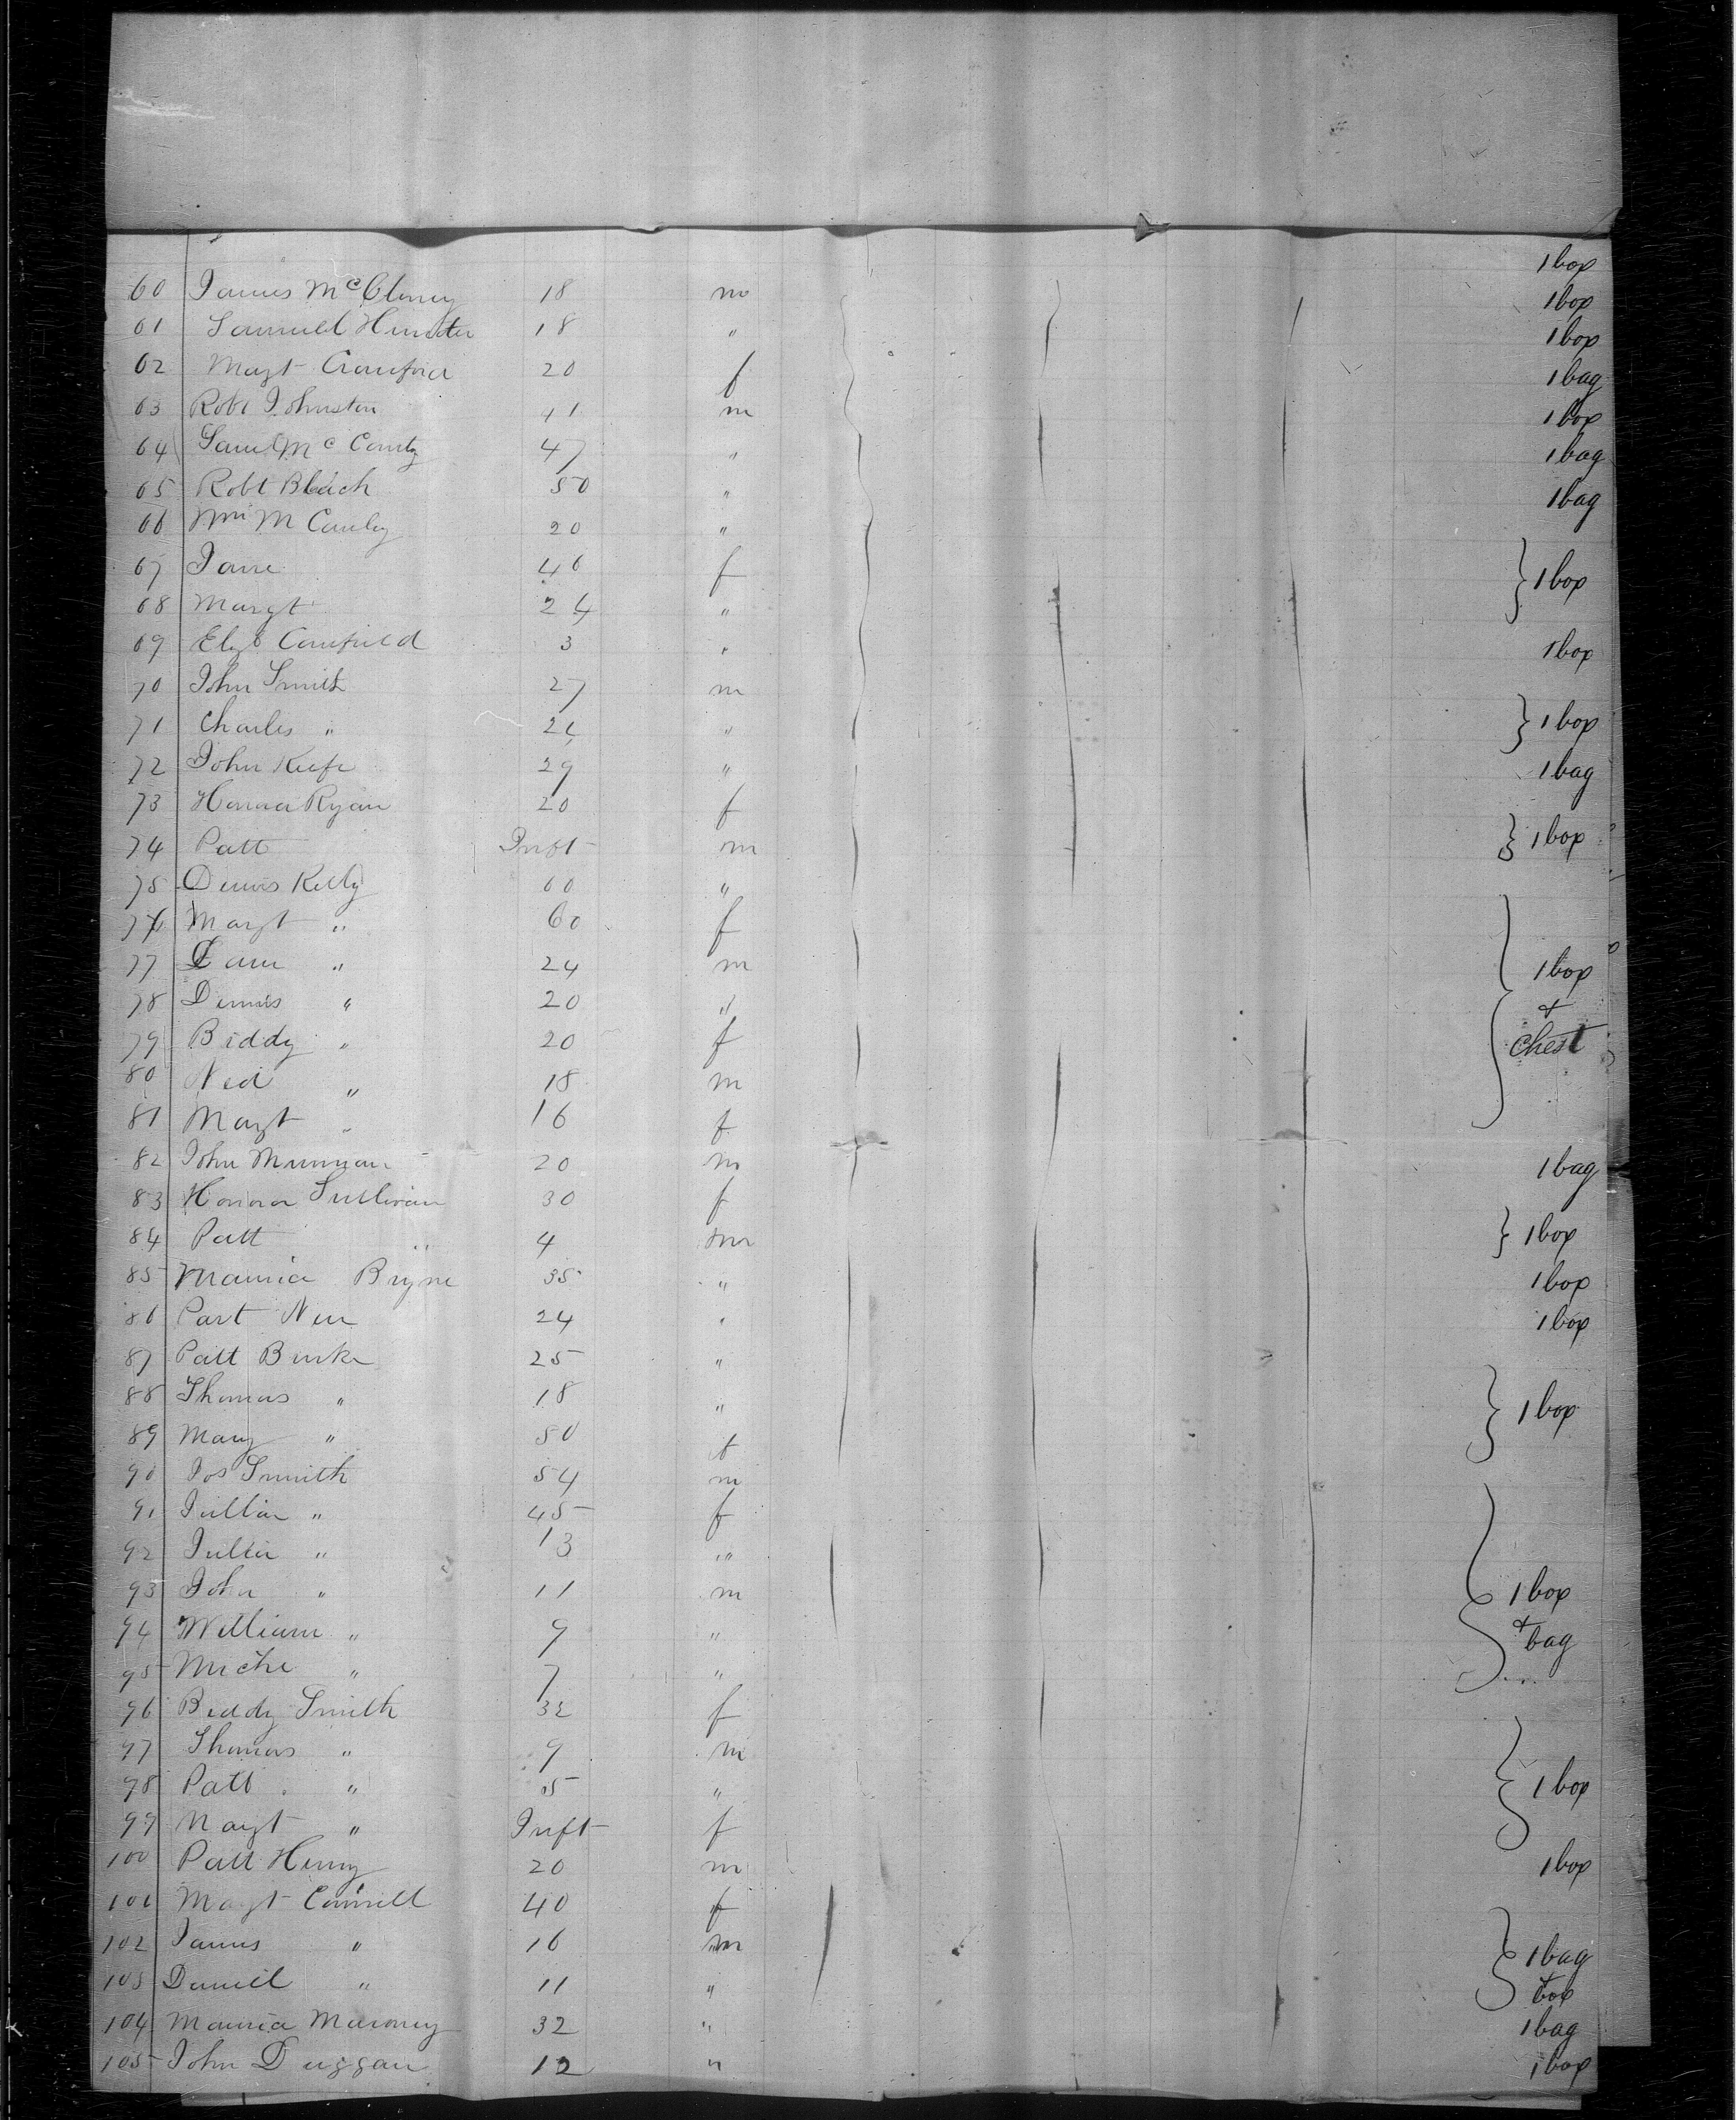 1 box
60 James McCloney 18 m 1 box
61 Samuel Hunter 18 " 1 box
62 Magt Crawford 20 f 1 bag
63 Robt Johnston 41 m 1 box
64 Saml Mc 47 " 1 bag
65 Robt Black 50 " 1 bag
66 Wm M Cauley 20 "
67 Jane 46 f } 1 box
68 Margt 24 "
69 Elizt Caufield 3 " 1 box
70 John Smith 27 m
71 Charles " 24 " } 1 box
72 John Keefe 29 " 1 bag
73 Honnor Ryan 20 f
74 Patt Inft m } 1 box
75 Dennis Kelly 60 "
76 Magt " 60 f
77 " 24 m } 1 box
78 Dennis " 20 " &
79 Biddy " 20 f Chest
80 Ned " 18 m
81 Magt " 16 f
82 John 20 m 1 bag
83 Honora Sullivan 30 f
84 Patt " 4 m } 1 box
85 Mauria Bryne 35 " 1 box
86 Part 24 " 1 box
87 Patt Burke 25 "
88 Thomas " 18 " } 1 box
89 Mary " 50 f
90 Jos Smith 54 m
91 Jullia " 45 f
92 Jullia " 13 "
93 John " 11 m } 1 box
94 William " 9 " & bag
95 Miche " 7 "
96 Biddy Smith 32 f
97 Thomas " 9 m
98 Patt " 5 " } 1 box
99 Magt " Inft f
100 Patt Henry 20 m 1 box
101 Magt Connell 40 f
102 James " 16 m } 1 bag
103 Daniell " 11 " & box
104 Mauria Maroney 32 " 1 bag
105 John Duggan 12 " 1 box